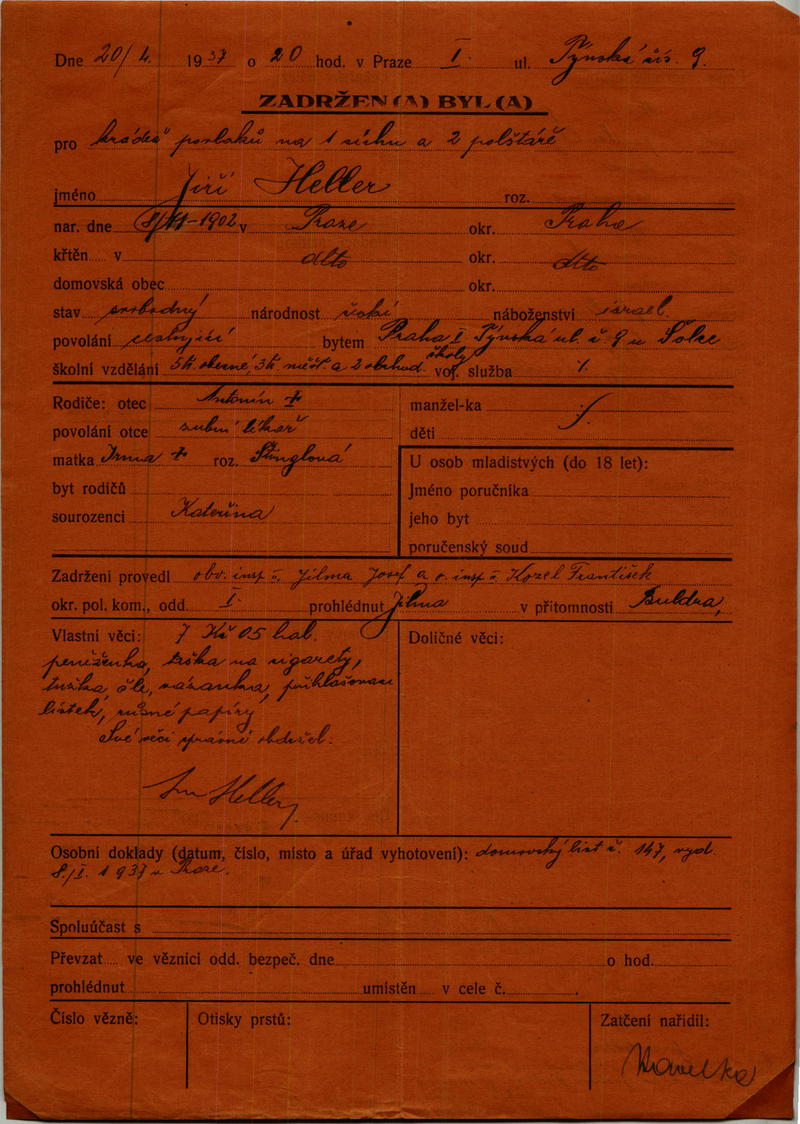 Dne 20/4. 1937 o 20 hod. v Praze I. ul. Týnská čís. 9.
ZADRŽEN(A) BYL(A)
pro krádež povlaků na 1 a 2 polštáře
jméno Jiří Heller roz.
nar. dne 1902 v Praze okr. Praha
křtěn v dtto okr. dtto
domovská obec okr.
stav svobodný národnost náboženství israel.
povolání cestující bytem Praha I. Týnská ul. č. 9 u Šolce
školní vzdělání 5 tř. obecné, 3 tř. měšť. a 2 obchod. školy voj. služba
Rodiče: otec Antonín
povolání otce zubní lékař
matka Irma roz.
byt rodičů
sourozenci Kateřina
manžel-ka
děti
U osob mladistvých (do 18 let):
Jméno poručníka
jeho byt
poručenský soud
Zadržení provedl obv. insp. Jílma Josef a o. insp. Kozel František
okr. pol. kom., odd. I. prohlédnut Jílma v přítomnosti Buldra,
Vlastní věci: 7 Kč 05 hal.
peněženka, taška na cigarety,
tužka, vázanka, přihlašovací
lístek, různé papíry
Své věci správně obdržel:
Heller
Doličné věci:
Osobní doklady (datum, číslo, místo a úřad vyhotovení): domovský list č. 147, vyd.
8./I. 1937 v Praze.
Spoluúčast s
Převzat ve věznici odd. bezpeč. dne o hod.
prohlédnut umístěn v cele č. .
Číslo vězně:
Otisky prstů:
Zatčení nařídil:
Havelka